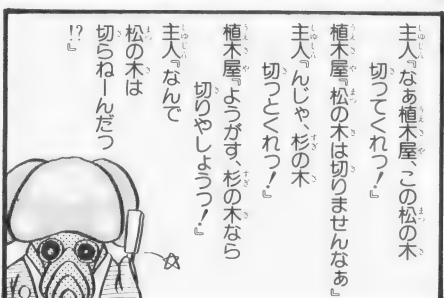 主人『なぁ植木屋、この松の木
切ってくれっ!』
植木屋『松の木は切りませんなぁ』
主人『んじゃ、杉の木
切っとくれっ!』
植木屋『ようがす、杉の木なら
切りやしょうっ!』
主人『なんで
松の木は
切らねーんだっ
!?』